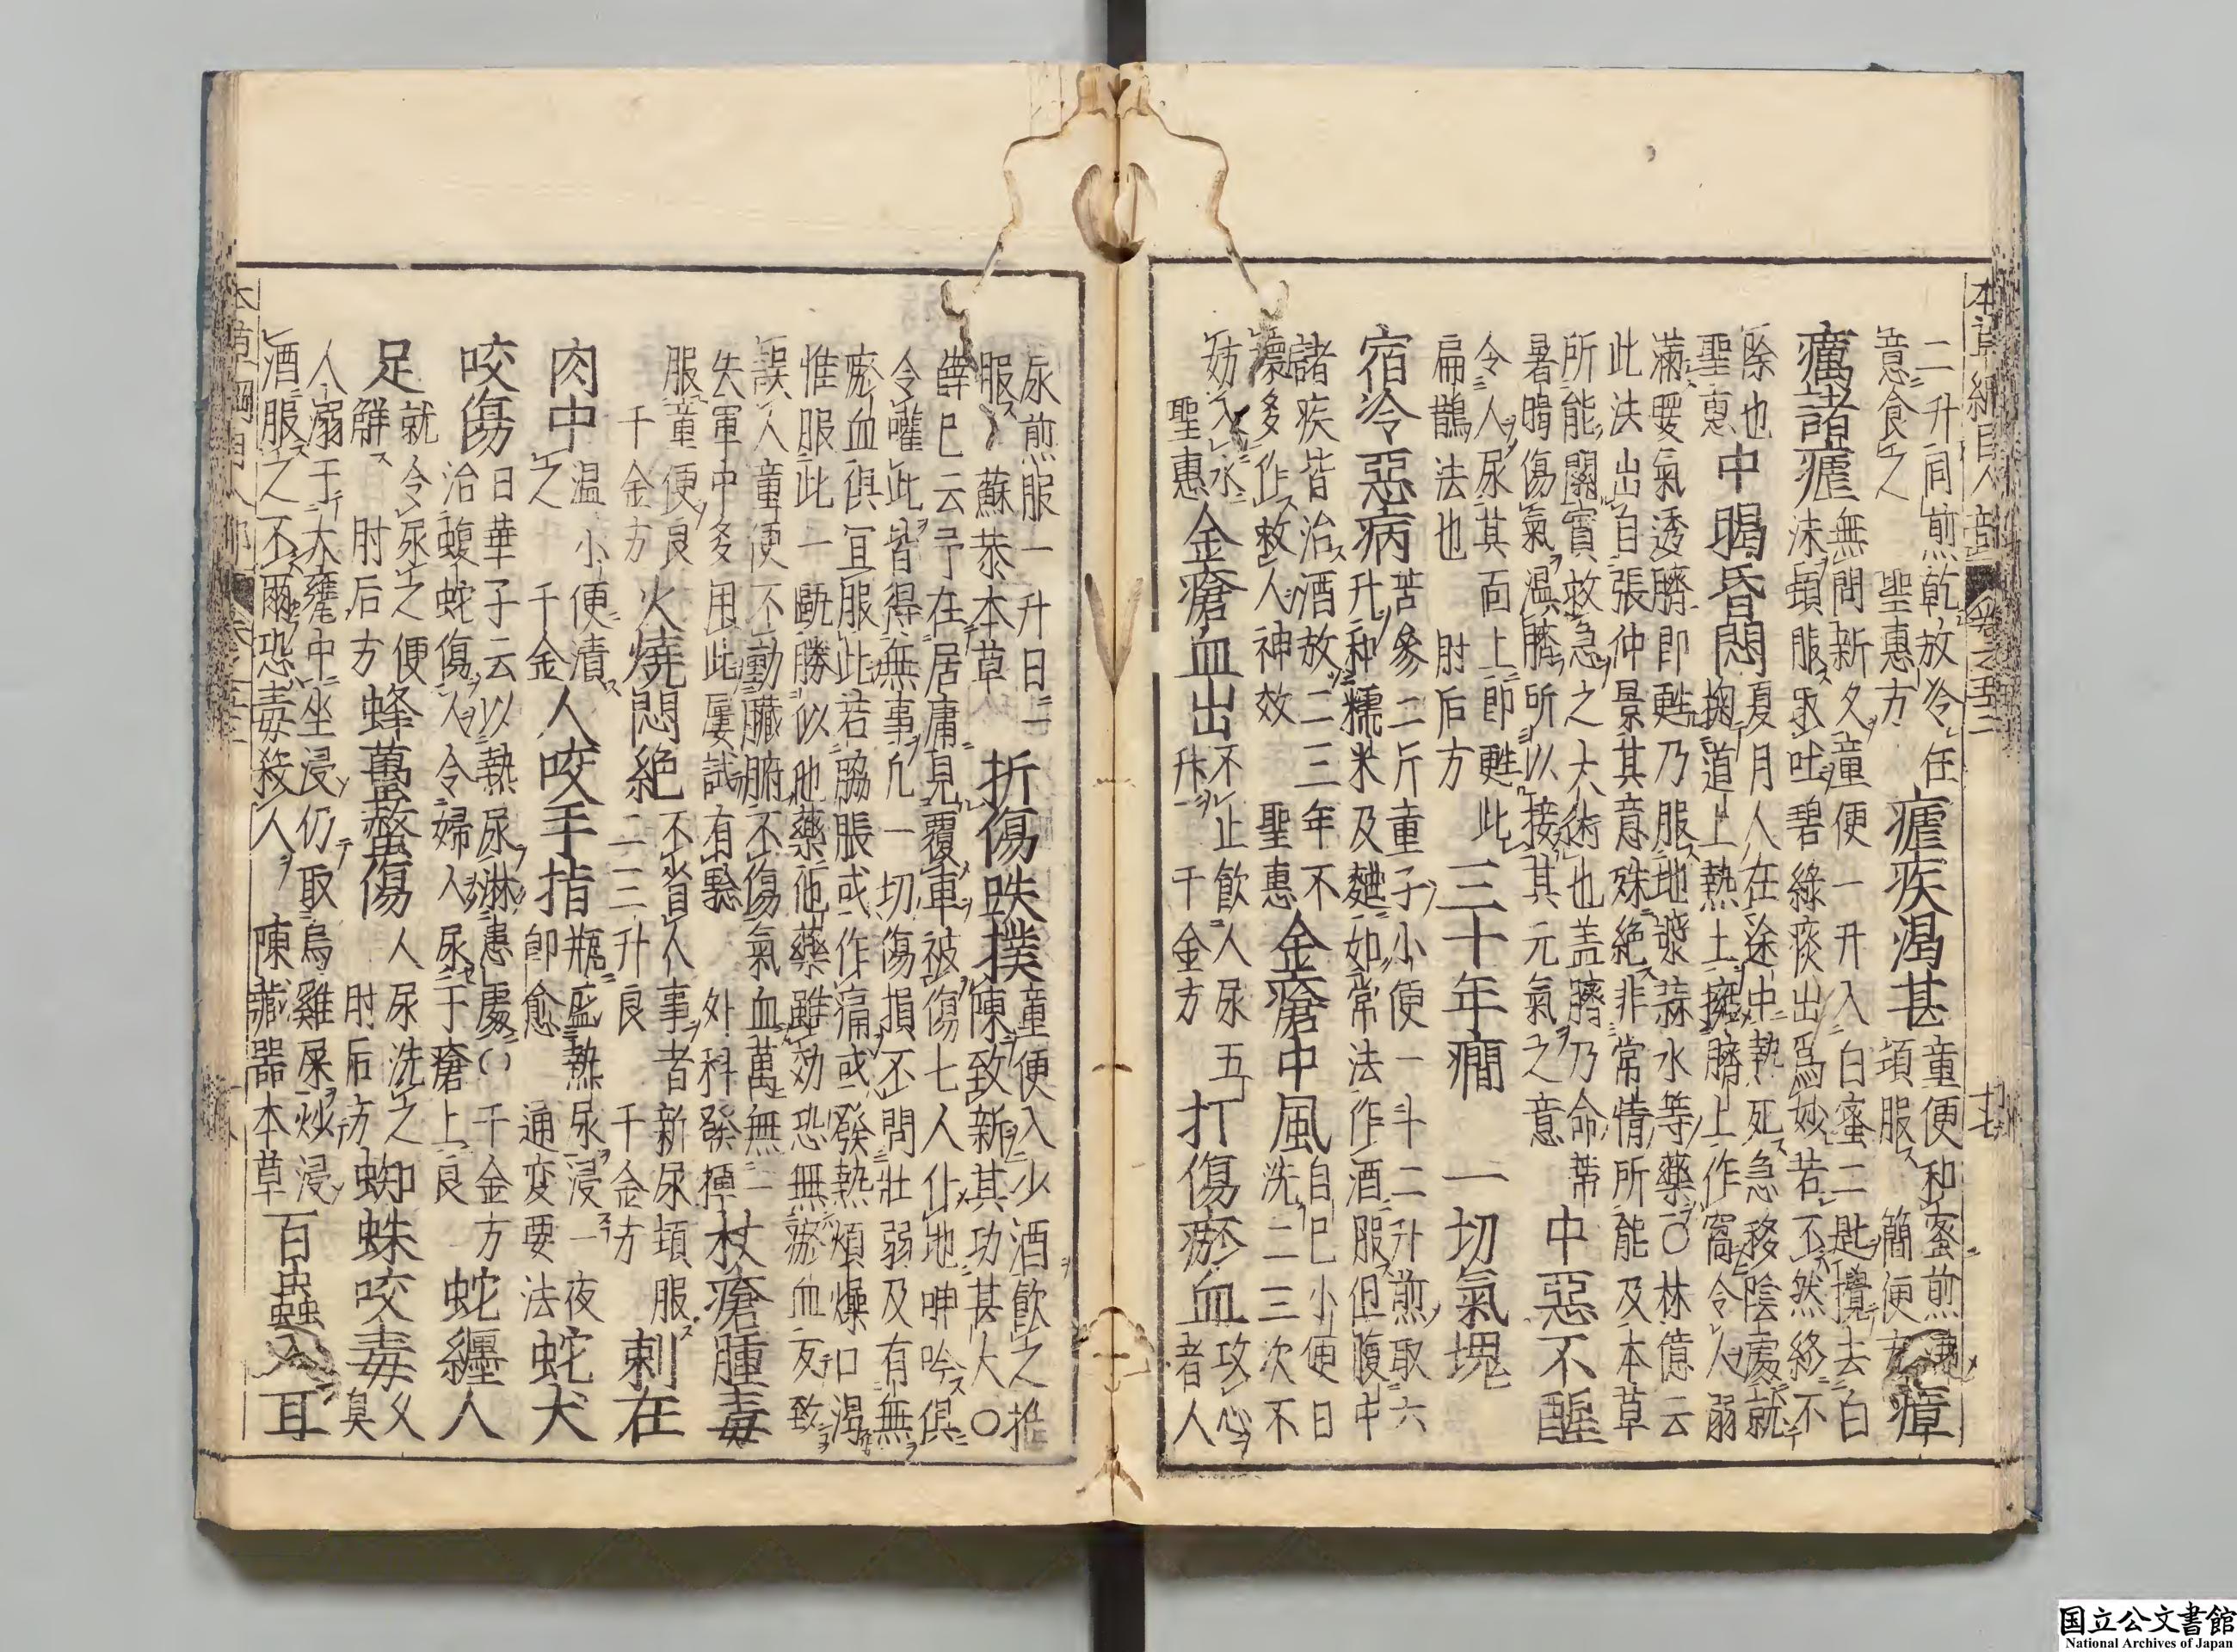 本草綱目人部 卷之五十二 十七
二升同煎乾放冷任意食之 聖惠方 瘧疾渴甚 童便和蜜煎沸頓服 簡便方 瘴
癘諸瘧 無問新久童便一升入白蜜二匙攪去白沫頓服取吐碧綠痰出爲妙若不然終不
除也 聖惠 中暍昏悶 夏月人在途中熱死急移陰處就掬道上熱土擁臍上作窩令人溺
滿要氣透臍即甦乃服地漿蒜水等藥○林億云此法出自張仲景其意殊絶非常情所能及本草
所能關實救急之大術也盖臍乃命蒂暑暍傷氣温臍所以接其元氣之意 中惡不醒
令人尿其面上即甦此扁鵲法也 肘后方 三十年癇 一切氣塊
宿冷惡病 苦參二斤童子小便一斗二升煎取六升和糯米及麯如常法作酒服但腹中
諸疾皆治酒放二三年不壞多作救人神效 聖惠 金瘡中風 自己小便日洗二三次不
妨入水 聖惠 金瘡血出 不止飲人尿五升 千金方 打傷瘀血 攻心者人
尿煎服一升日一服 蘇恭本草 折傷跌撲 童便入少酒飲之推陳致新其功甚大○
薛已云予在居庸見覆車被傷七人仆地呻吟俱令灌此皆得無事凡一切傷損不問壯弱及有無
瘀血俱宜服此若脇脹或作痛或發熱煩燥口渴惟服此一甌勝似他藥他藥雖効恐無瘀血反致
誤人童便不動臟腑不傷氣血萬無一失軍中多用此屢試有驗 外科發揮 杖瘡腫毒
服童便良 千金方 火燒悶絶 不省人事者新尿頓服二三升良 千金方 刺在
肉中 温小便漬之 千金 人咬手指 瓶盛熱尿浸一夜即愈 通変要法 蛇犬
咬傷 日華子云以熱尿淋患處○千金方治蝮蛇傷人令婦人尿于瘡上良 蛇纒人
足 就令尿之便解 肘后方 蜂蠆螫傷 人尿洗之 肘后方 蜘蛛咬毒 久臭
人溺于大甕中坐浸仍取烏雞屎炒浸酒服之不爾恐毒殺人 陳藏器本草 百蟲入耳
国立公文書館
National Archives of Japan